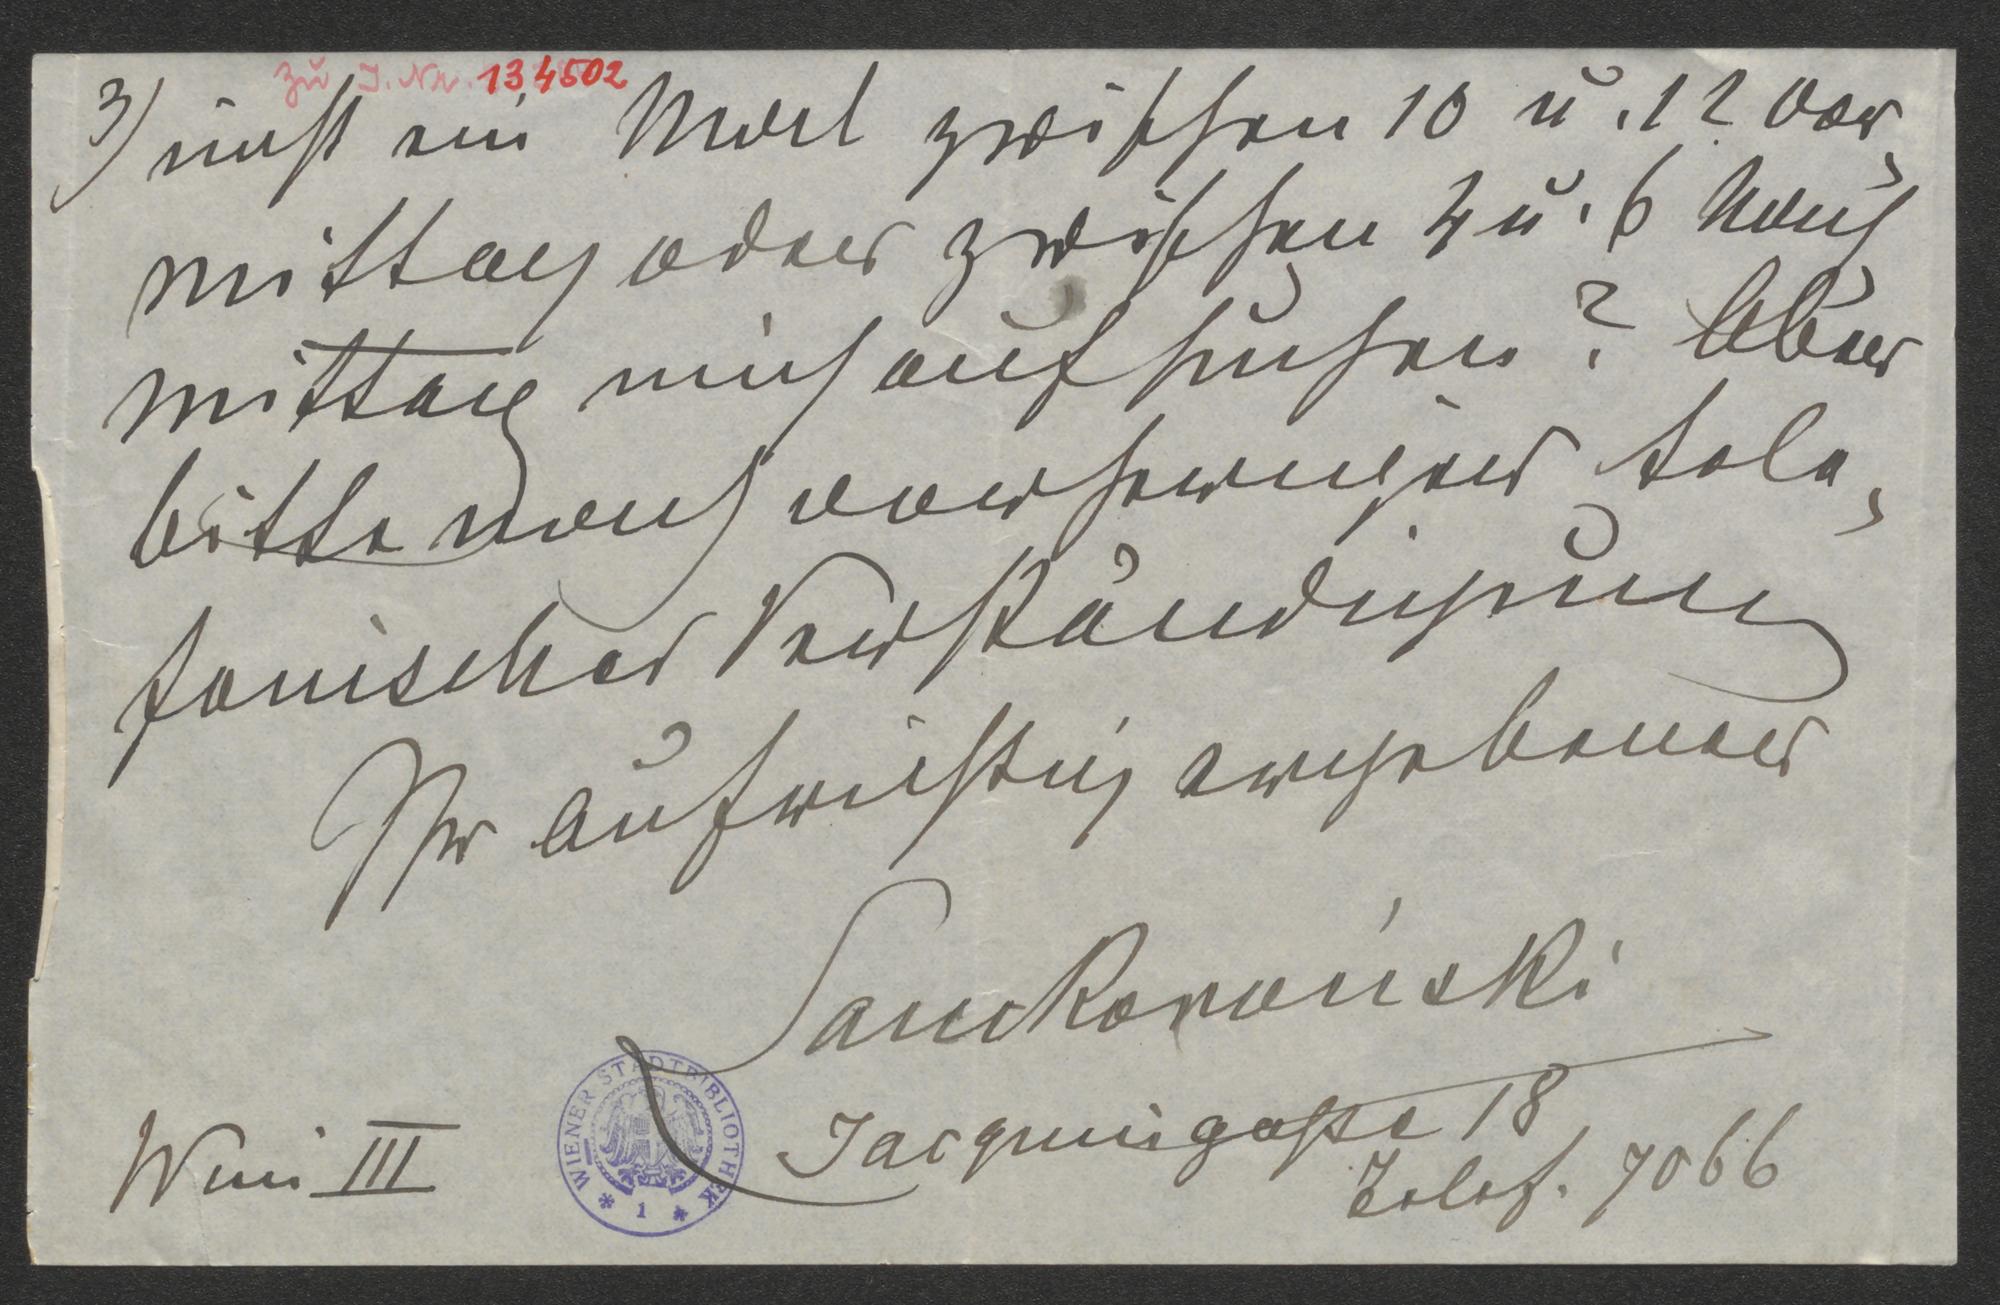 zu J. Nr. 134502
3) nicht ein Mal zwischen 10 u. 12 Vor-
mittag oder zwischen 4 u. 6 Nach
mittag mich aufsuchen? Aber
bitte nach vorheriger tele-
fonischer Verständigung
Ihr aufrichtig ergebener
Lanckoroński
Wien III Jacquingasse 18
Telef. 7066
WIENER STADTBIBLIOTHEK
1